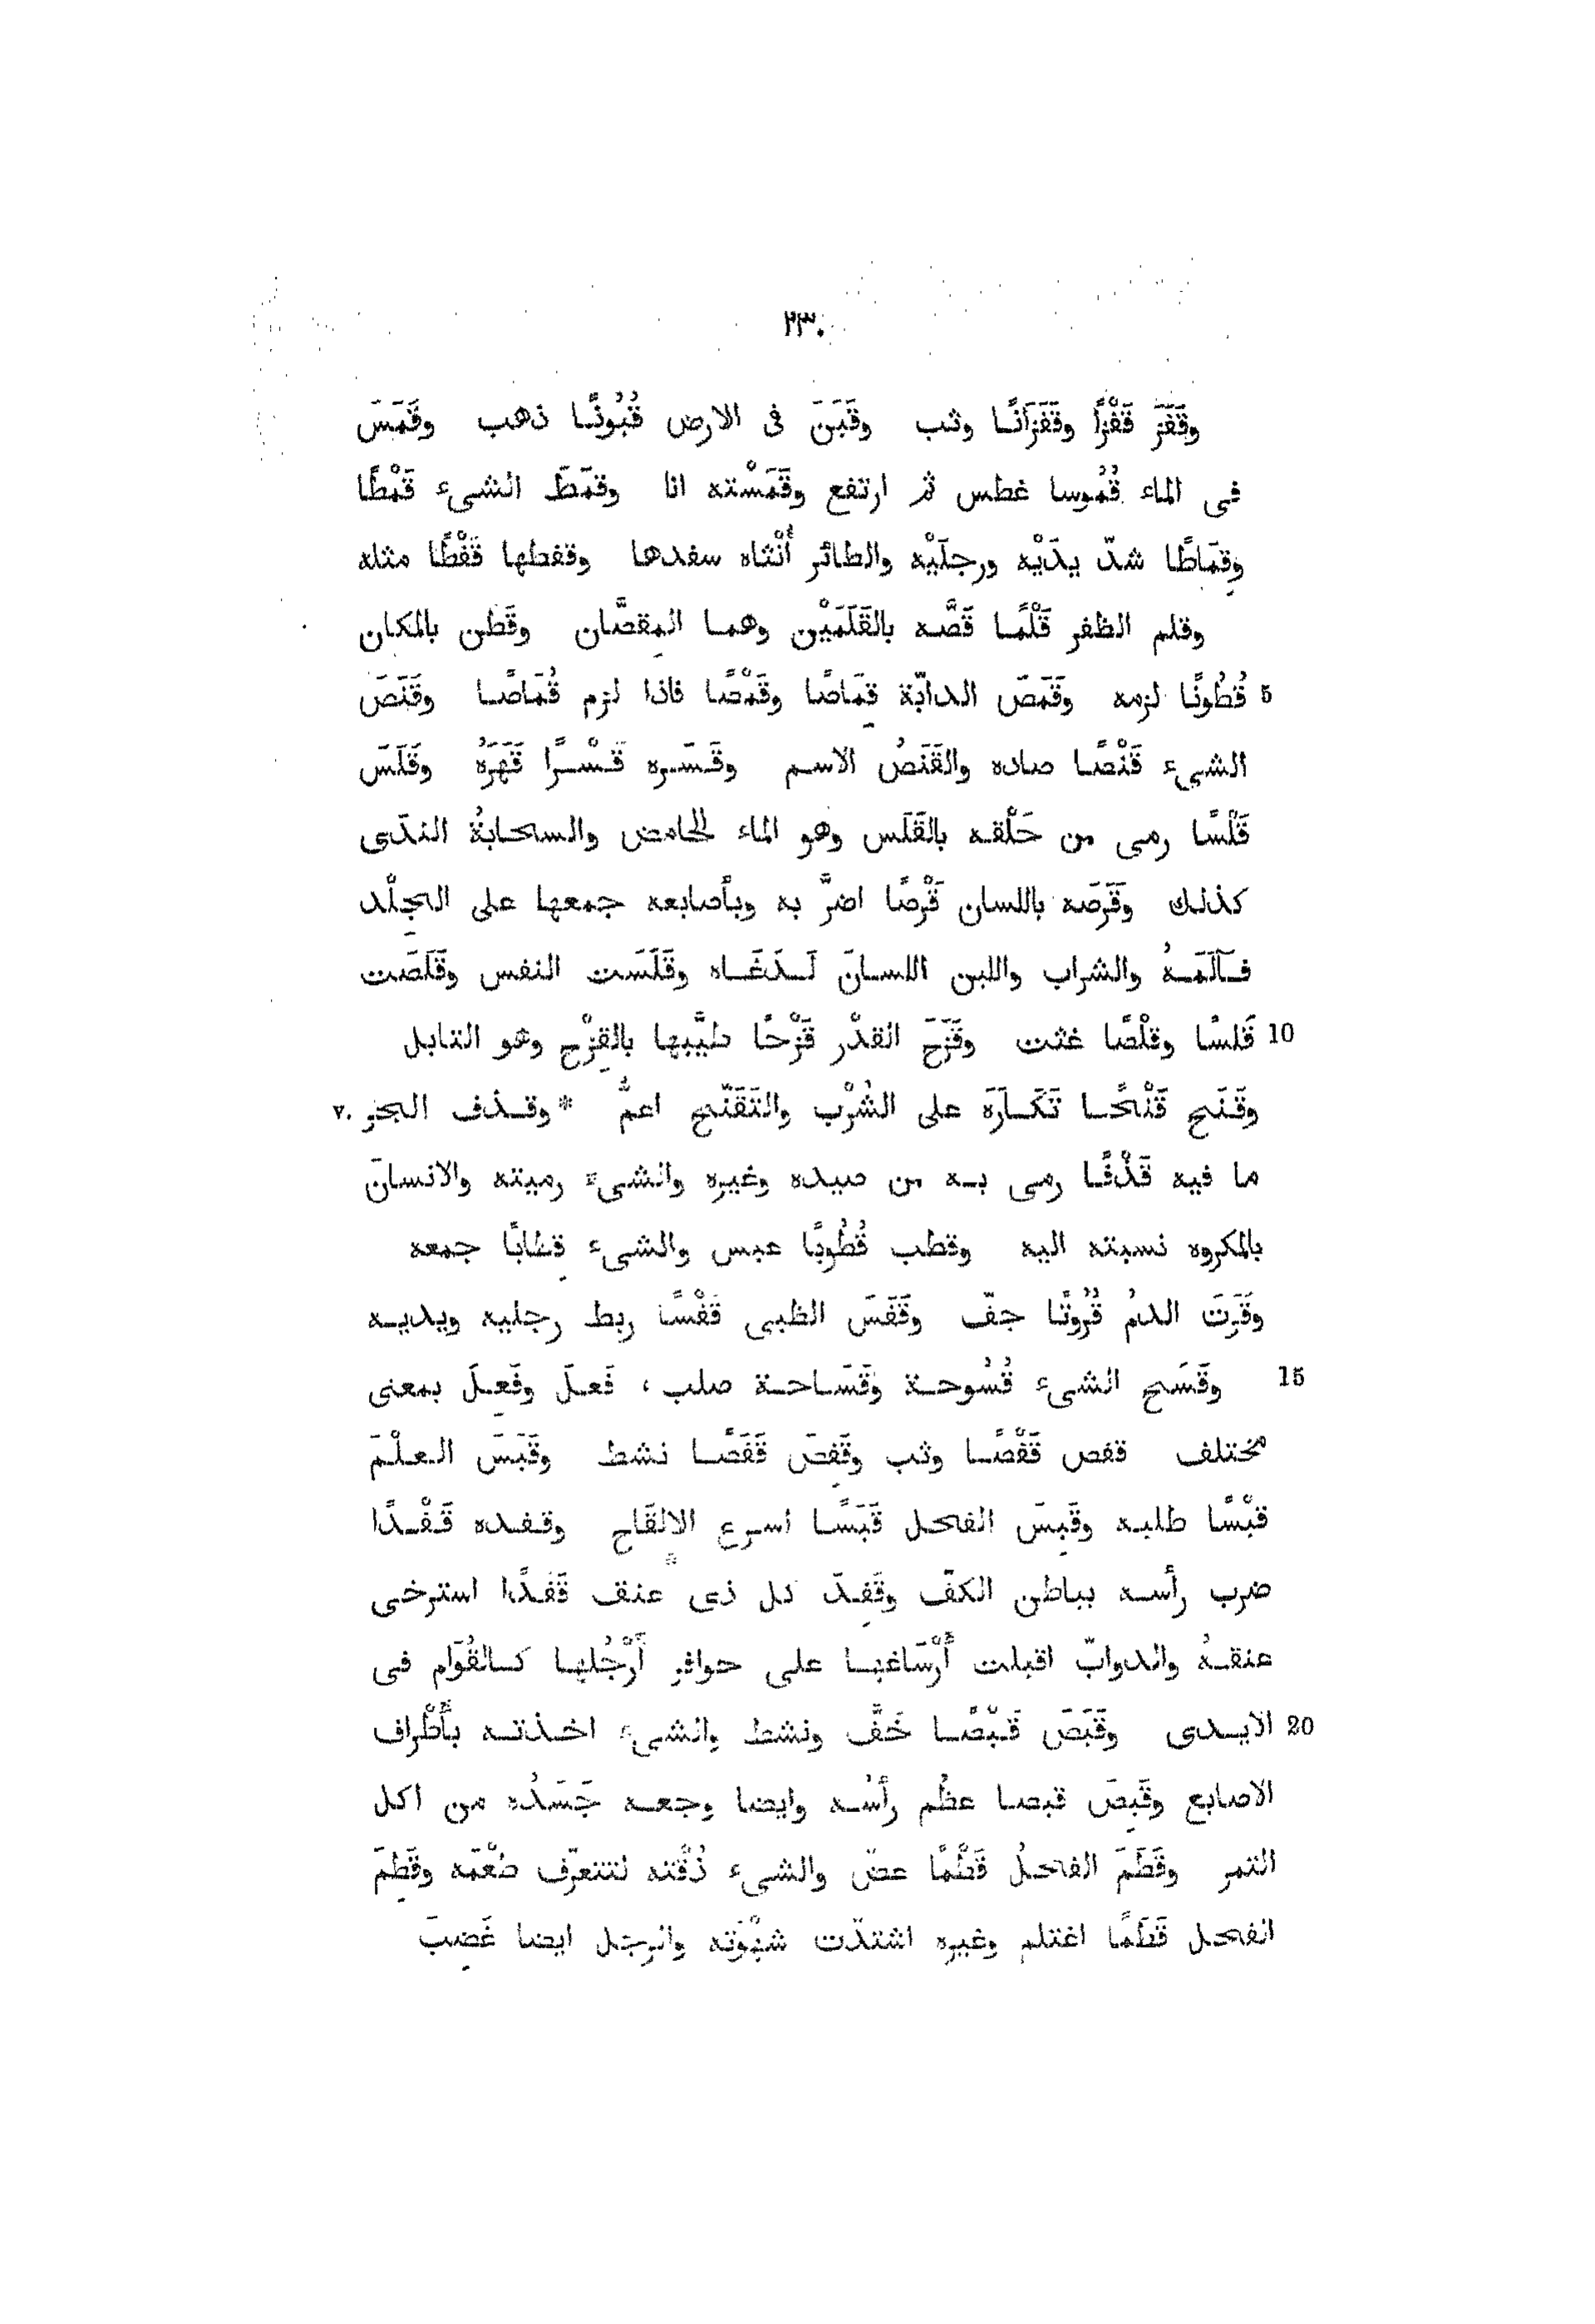 ٢٣٠
وقَفَزَ قَفْزًا وقَفَزَانًا وثب وقَبَنَ فى الارض قُبُونًا ذهب وقَمَسَ
فى الماء قُمُوسا غطس ثم ارتفع وقَمَسْته انا وقمَطَ الشىء قَمْطًا
وقِمَاطًا شدّ يدَيْه ورجلَيْه والطائر أُنْثاه سفدها وقفطها قَفْطًا مثله
وقلم الظفر قَلْمًا قَصَّه بالقَلَمَيْن وهما المِقصَّان وقَطن بالمكان
5 قُطُونًا لزمه وقَمَصَ الدابّة قِمَاصًا وقَمْصًا فاذا لزم قُمَاصًا وقَنَصَ
الشىء قَنْصًا صاده والقَنَصُ الاسم وقَسَره قَسْرًا قَهَرَهُ وقَلَسَ
قَلْسًا رمى من حَلْقه بالقَلَس وهو الماء الحامض والسحابةُ الندَى
كذلك وقَرَصَه باللسان قَرْصًا اضرَّ به وبأصابعه جمعها على الجِلْد
فآلَمَهُ والشراب واللبن اللسانَ لَدَغَاه وقَلَسَت النفس وقَلَصَت
10 قَلسًا وقلْصًا غثت وقَزَحَ القدْر قَزْحًا طيَّبها بالقِزْح وهو التابل
وقَنَح قَنْحًا تَكَارَهَ على الشُرْب والتَقَنّح اعمُّ * وقذف البحر ٧٠
ما فيه قَذْفًا رمى به من صيده وغيره والشىء رميته والانسانَ
بالمكروه نسبته اليه وقطب قُطُوبًا عبس والشىء قِطابًا جمعه
وقَرَتَ الدمُ قُرُوتًا جفّ وقَفَسَ الظبى قَفْسًا ربط رجليه ويديه
15 وقَسَح الشىء قُسُوحة وقَسَاحة صلب، فَعلَ وفَعِلَ بمعنى
مختلف قفص قَفْصًا وثب وقَفِصَ قَفَصًا نشط وقَبَسَ العلْمَ
قبْسًا طلبه وقَبِسَ الفحل قَبَسًا اسرع الالقَاح وقفده قَفْدًا
ضرب رأسه بباطن الكفّ وقَفِدَ كل ذى عنق قَفَدًا استرخى
عنقهُ والدوابّ اقبلت أَرْسَاغها على حوافر أَرْجُلها كالقُوَام فى
20 الايدى وقَبَصَ قَبْصًا خَفَّ ونشط والشىء اخذته بأَطْراف
الاصابع وقَبِصَ قبصا عظُم رأسُه وايضا وجعه جَسَدُه من اكل
التمر وقَطَمَ الفحلُ قَطْمًا عضّ والشىء ذُقْته لتتعرّف طَعْمَه وقَطِمَ
الفحل قَطَمًا اغتلم وغيره اشتدّت شَهْوَته والرجل ايضا غَضِبَ